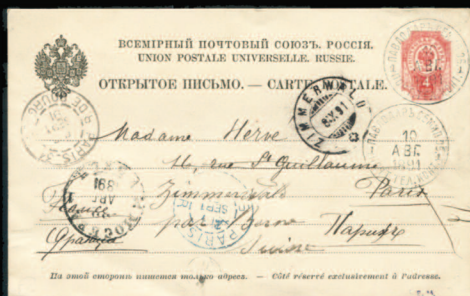 ВСЕМІРНЫЙ ПОЧТОВЫЙ СОЮЗЪ. РОССІЯ.
UNION POSTALE UNIVERSELLE. RUSSIE.
ОТКРЫТОЕ ПИСЬМО. — CARTE POSTALE.
4
ZIMMERWALD
IX.91
PARIS
Madame Hervé
11, rue St Guillaume
10
АВГ
1891
Zimmerwald Paris
МОСКВА
1891
par Berne Парижъ
Франція Suisse
PARIS
На этой сторонѣ пишется только адресъ. — Côté réservé exclusivement à l'adresse.